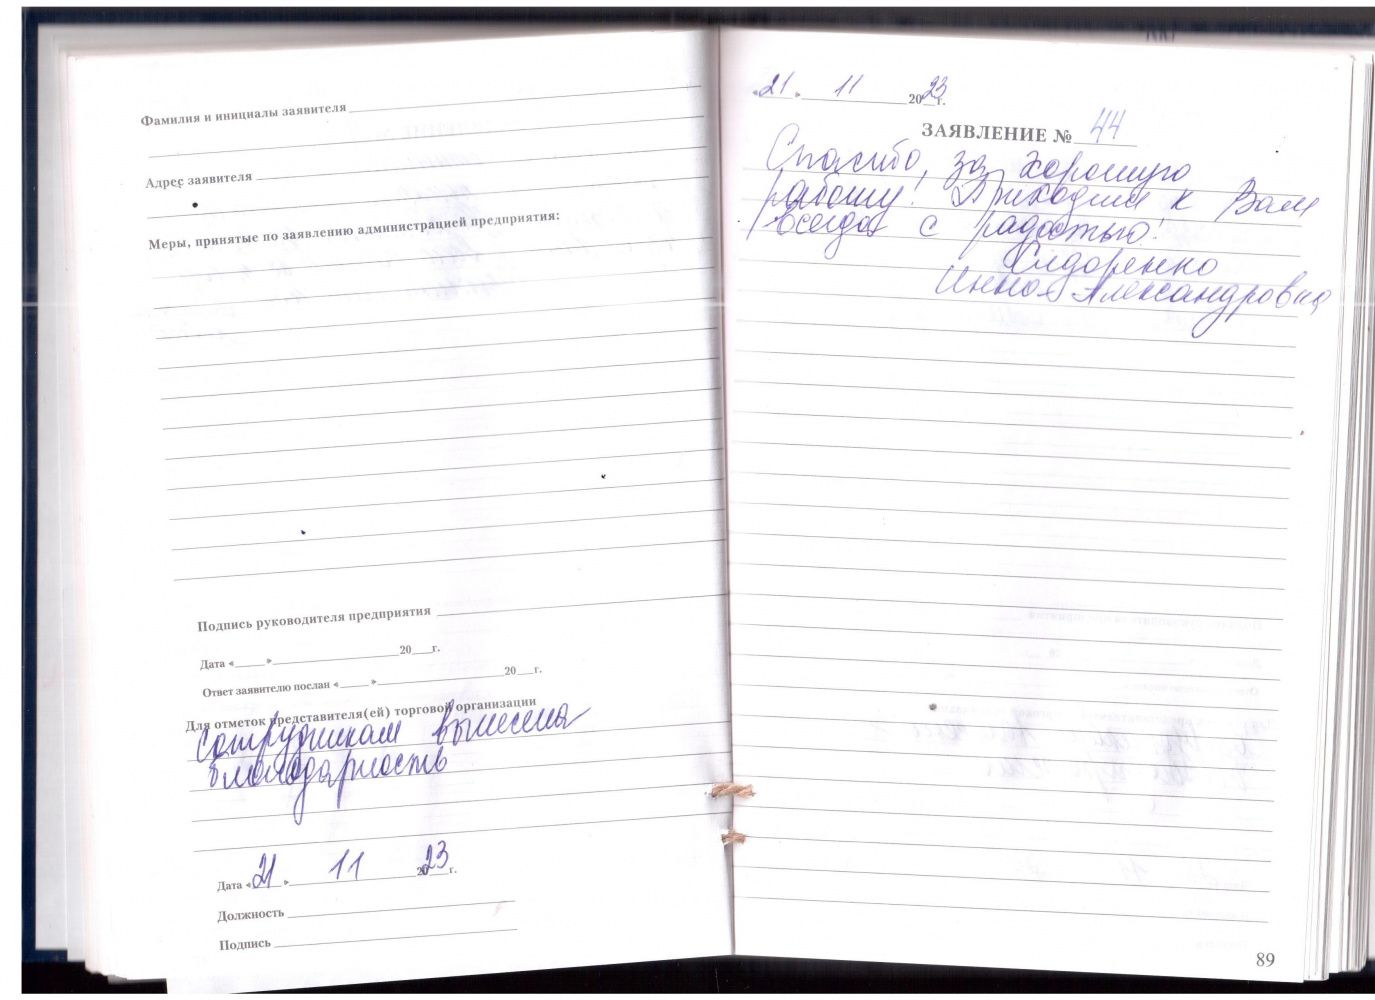 Фамилия и инициалы заявителя
Адрес заявителя
Меры, принятые по заявлению администрацией предприятия:
Подпись руководителя предприятия
Дата «____»____________20___г.
Ответ заявителю послан «____»____________20___г.
Для отметок представителя(ей) торговой организации
Сотрудникам вынесена
благодарность
Дата «21» 11 2023г.
Должность
Подпись
«21» 11 2023г.
ЗАЯВЛЕНИЕ № 44
Спасибо, за хорошую
работу! Приходим к Вам
всегда с радостью!
Сидоренко
Инна Александровна
89